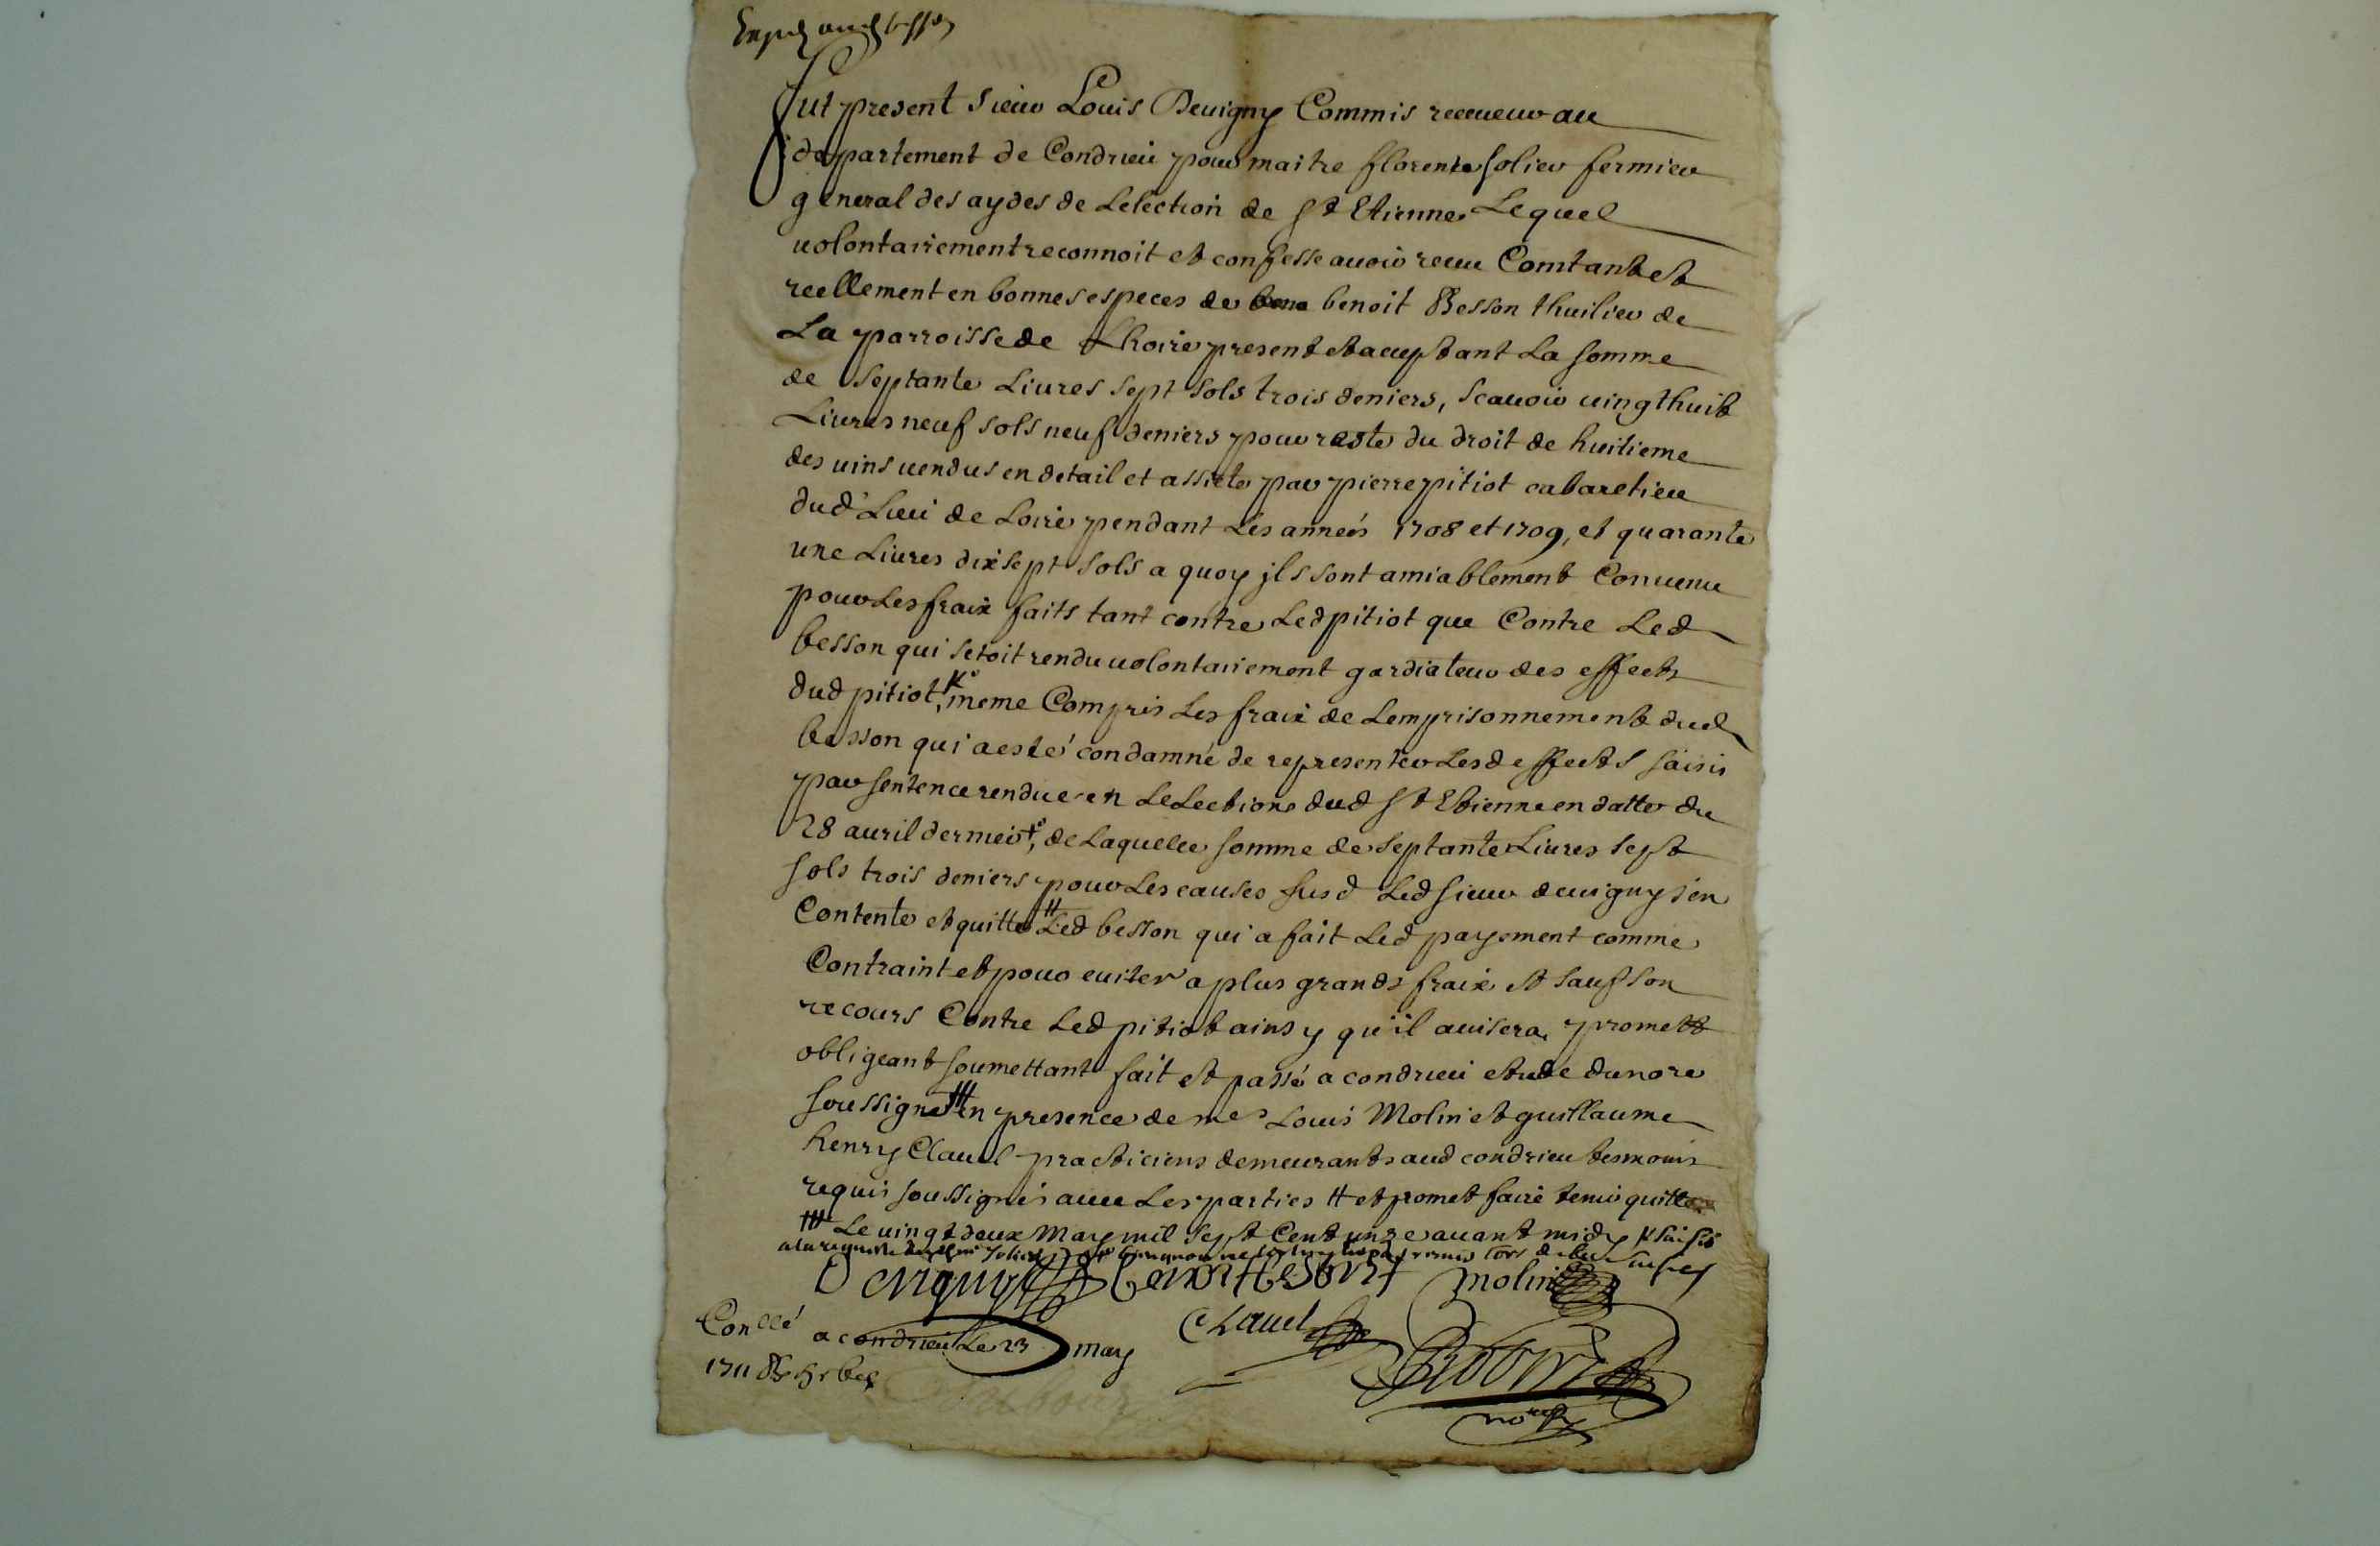 fut present sieur Louis Devigny Commis receveur au
departement de Condrieu pour maitre florent solier fermier
general des aydes de Lelection de St Etienne Lequel
volontairement reconnoit et confesse avoir receu Comtant et
reellement en bonnes especes de benoit Besson thuilier de
La parroisse de Lhoire present et acceptant La somme
de septante Livres sept sols trois deniers, scavoir vingthuit
Livres neuf sols neuf deniers pour reste du droit de huitieme
des vins vendus en detail et assiete par pierre pitiot cabaretier
dud Lieu de Loire pendant Les années 1708 et 1709, et quarante
une Livres dixsept sols a quoy jls sont amiablement Convenu
pour Les fraix faits tant contre Led pitiot que Contre Led
besson qui setoit rendu volontairement gardiateur des effects
dud pitiot, meme Compris Les fraix de Lemprisonnement dud
besson qui a esté condamné de representer Lesd effects saisis
par sentence rendue en Lelection dud St Etienne en datte du
28 avril dernier, de Laquelle somme de septante Livres sept
sols trois deniers pour Les causes susd Led sieur devigny sen
Contente et quitte # Led besson qui a fait Led payement comme
Contraint et pour eviter a plus grands fraix et sauf son
recours Contre Led pitiot ainsy qu'il avisera, promett
obligeant soumettant fait et passé a condrieu etude du nore
soussigné en presence de mes Louis Molin et guillaume
henry Clavel practiciens demeurants aud condrieu tesmoins
requis soussignés avec Les parties # et promet faire tenir quitte
Le vingt deux May mil sept Cent unze avant midy saisis
a la requeste
Devigny benoit beson molin
Conllé a condrieu Le 23 may Clavel
1711